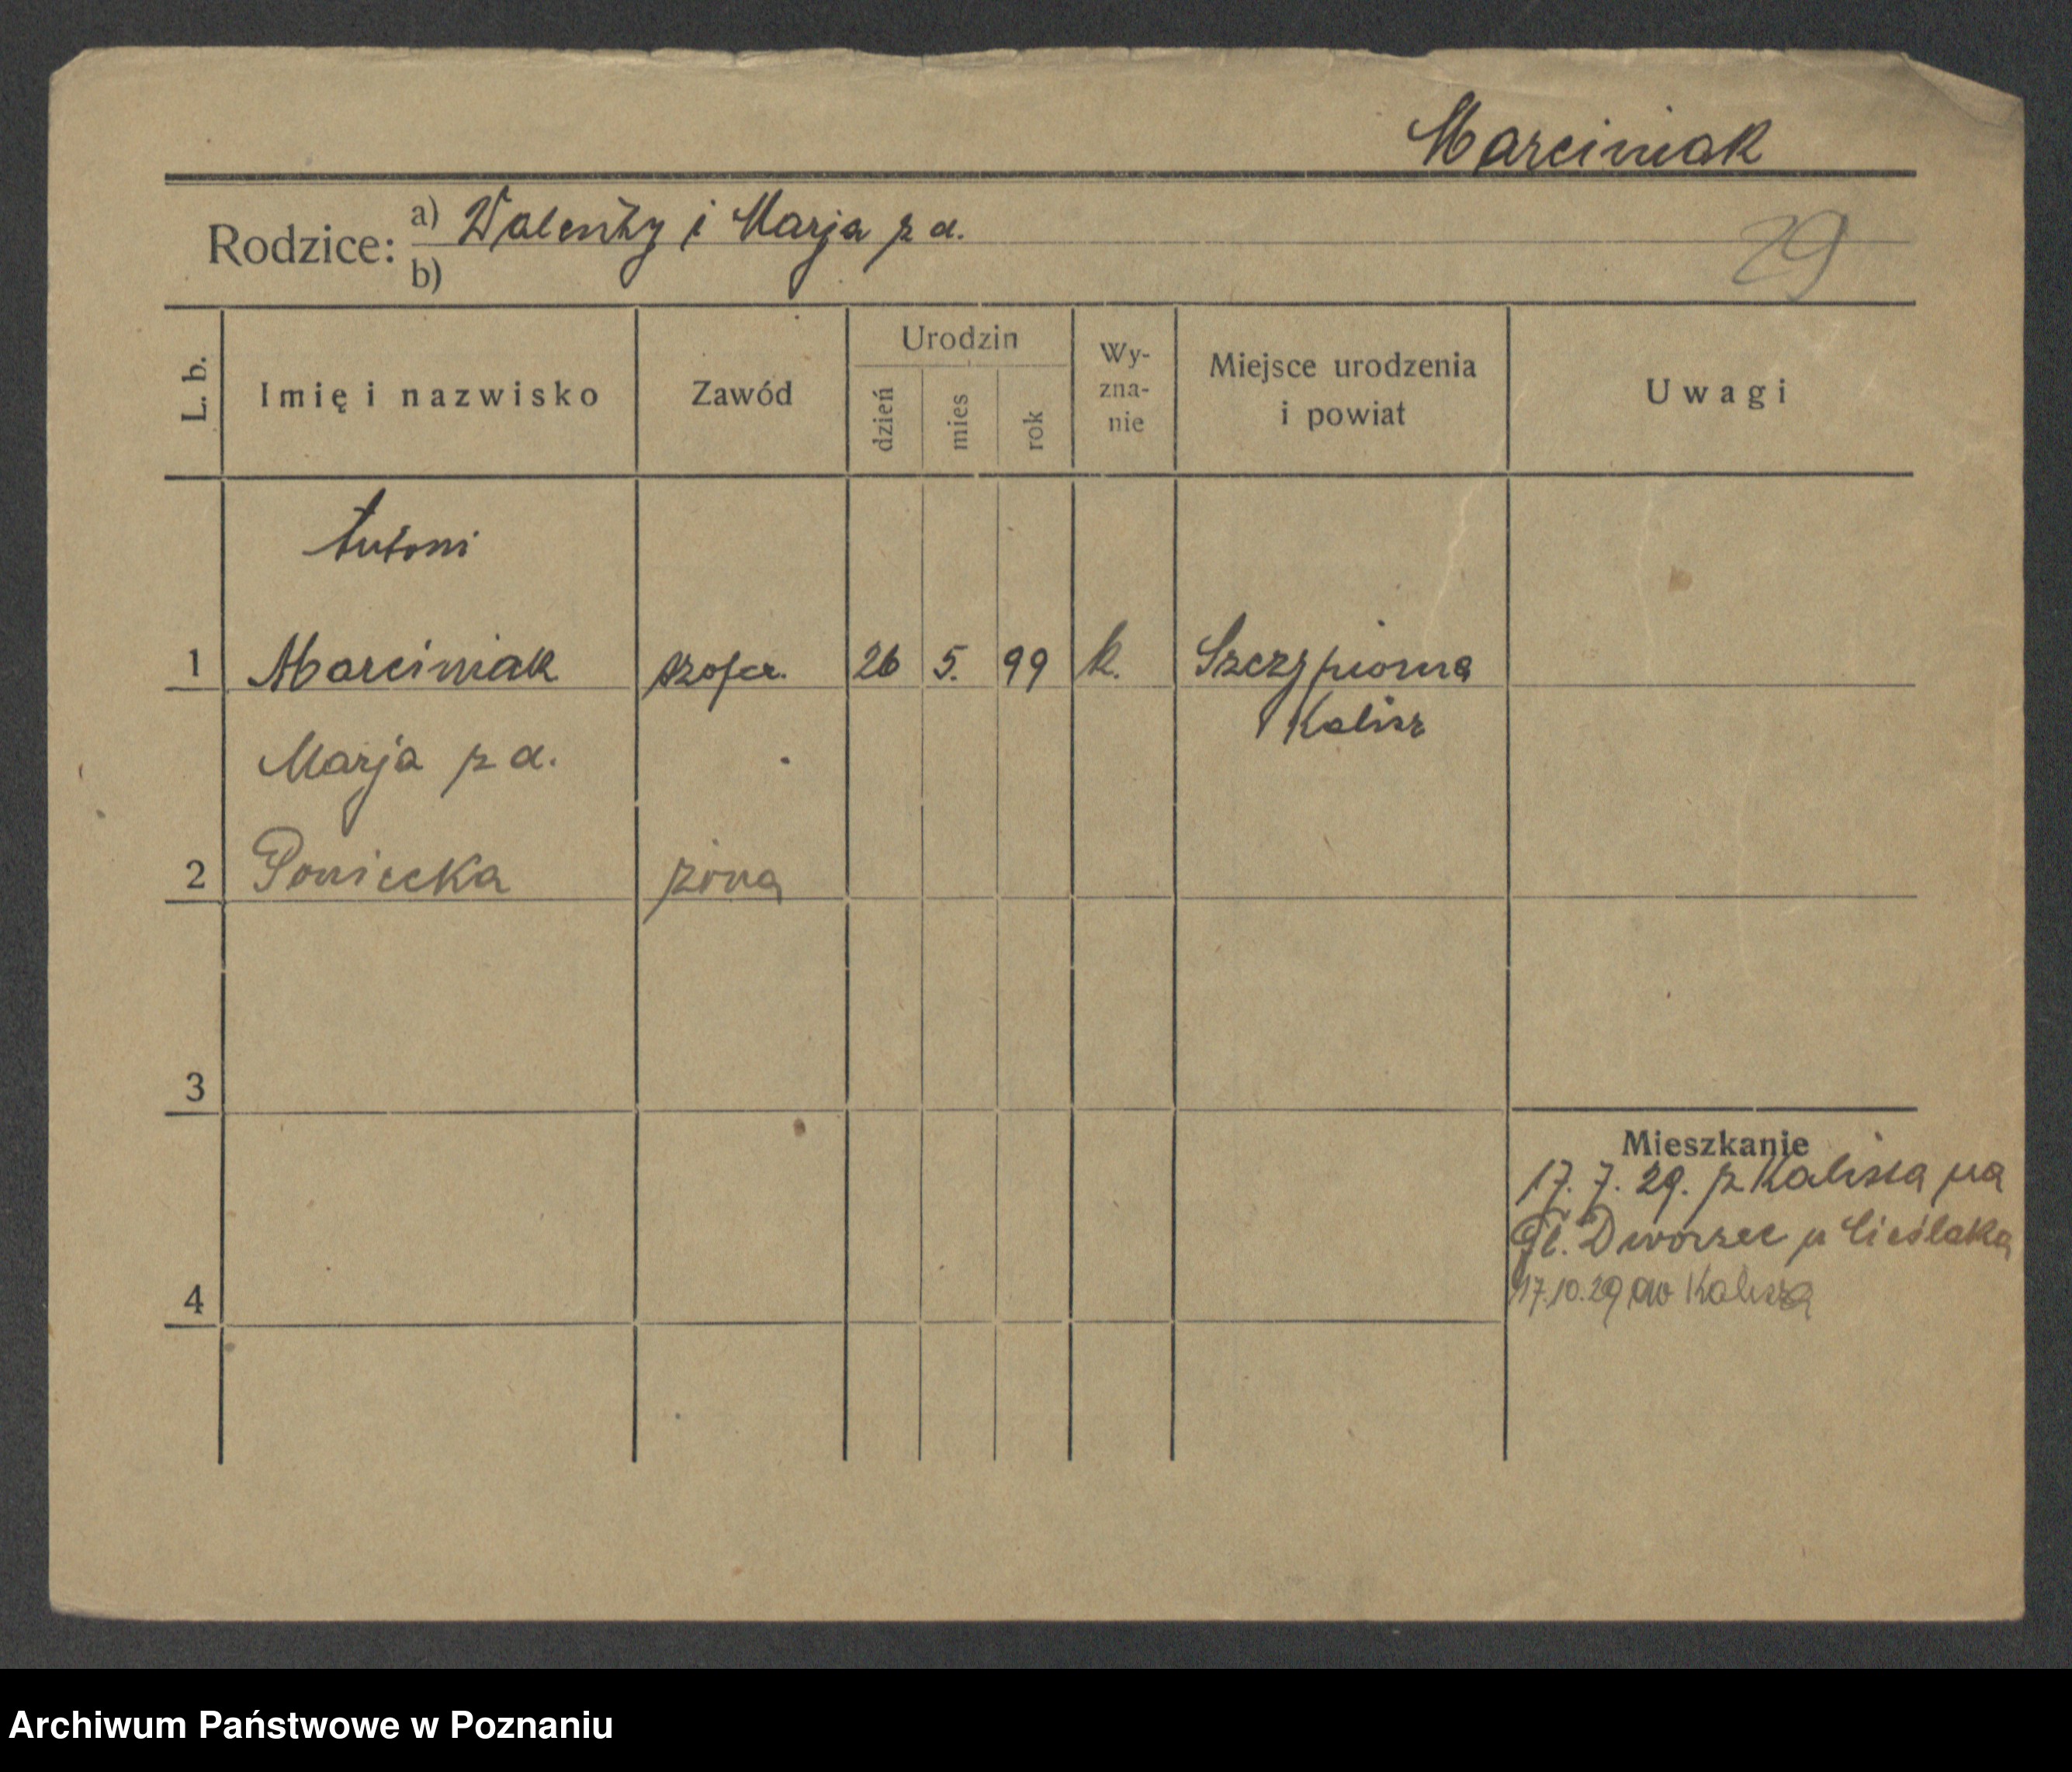 Marciniak
Rodzice: a) Walenty i Marja z d.
b)
29
L. b.
Imię i nazwisko
Zawód
Urodzin
dzień
mies
rok
Wy-
zna-
nie
Miejsce urodzenia
i powiat
Uwagi
Antoni
1 Marciniak szofer. 26 5. 99 k. Szczypiorna
Kalisz
Marja z d.
2 Poniecka żona
3
Mieszkanie
17. 7. 29. z Kalisza na
Gł. Dworzec u Cieślaka
4
17.10.29 do Kalisza
Archiwum Państwowe w Poznaniu